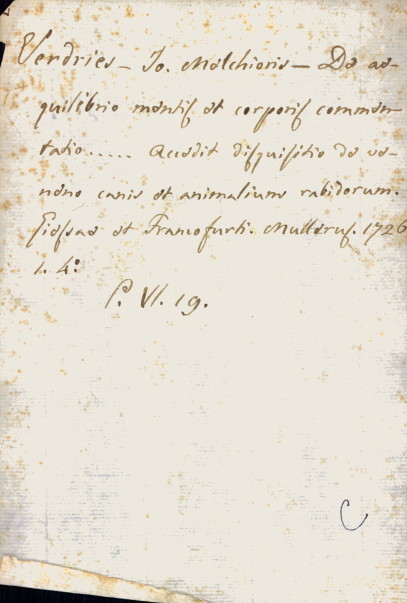 Verdries - Jo. Melchioris - De ae-
quilibrio mentis et corporis commen-
tatio..... Accedit disquisitio de ve-
neno canis et animalium rabidorum.
Giessae et Francofurti. Mullerus. 1726
1. 4.o
P. VI. 19.
C